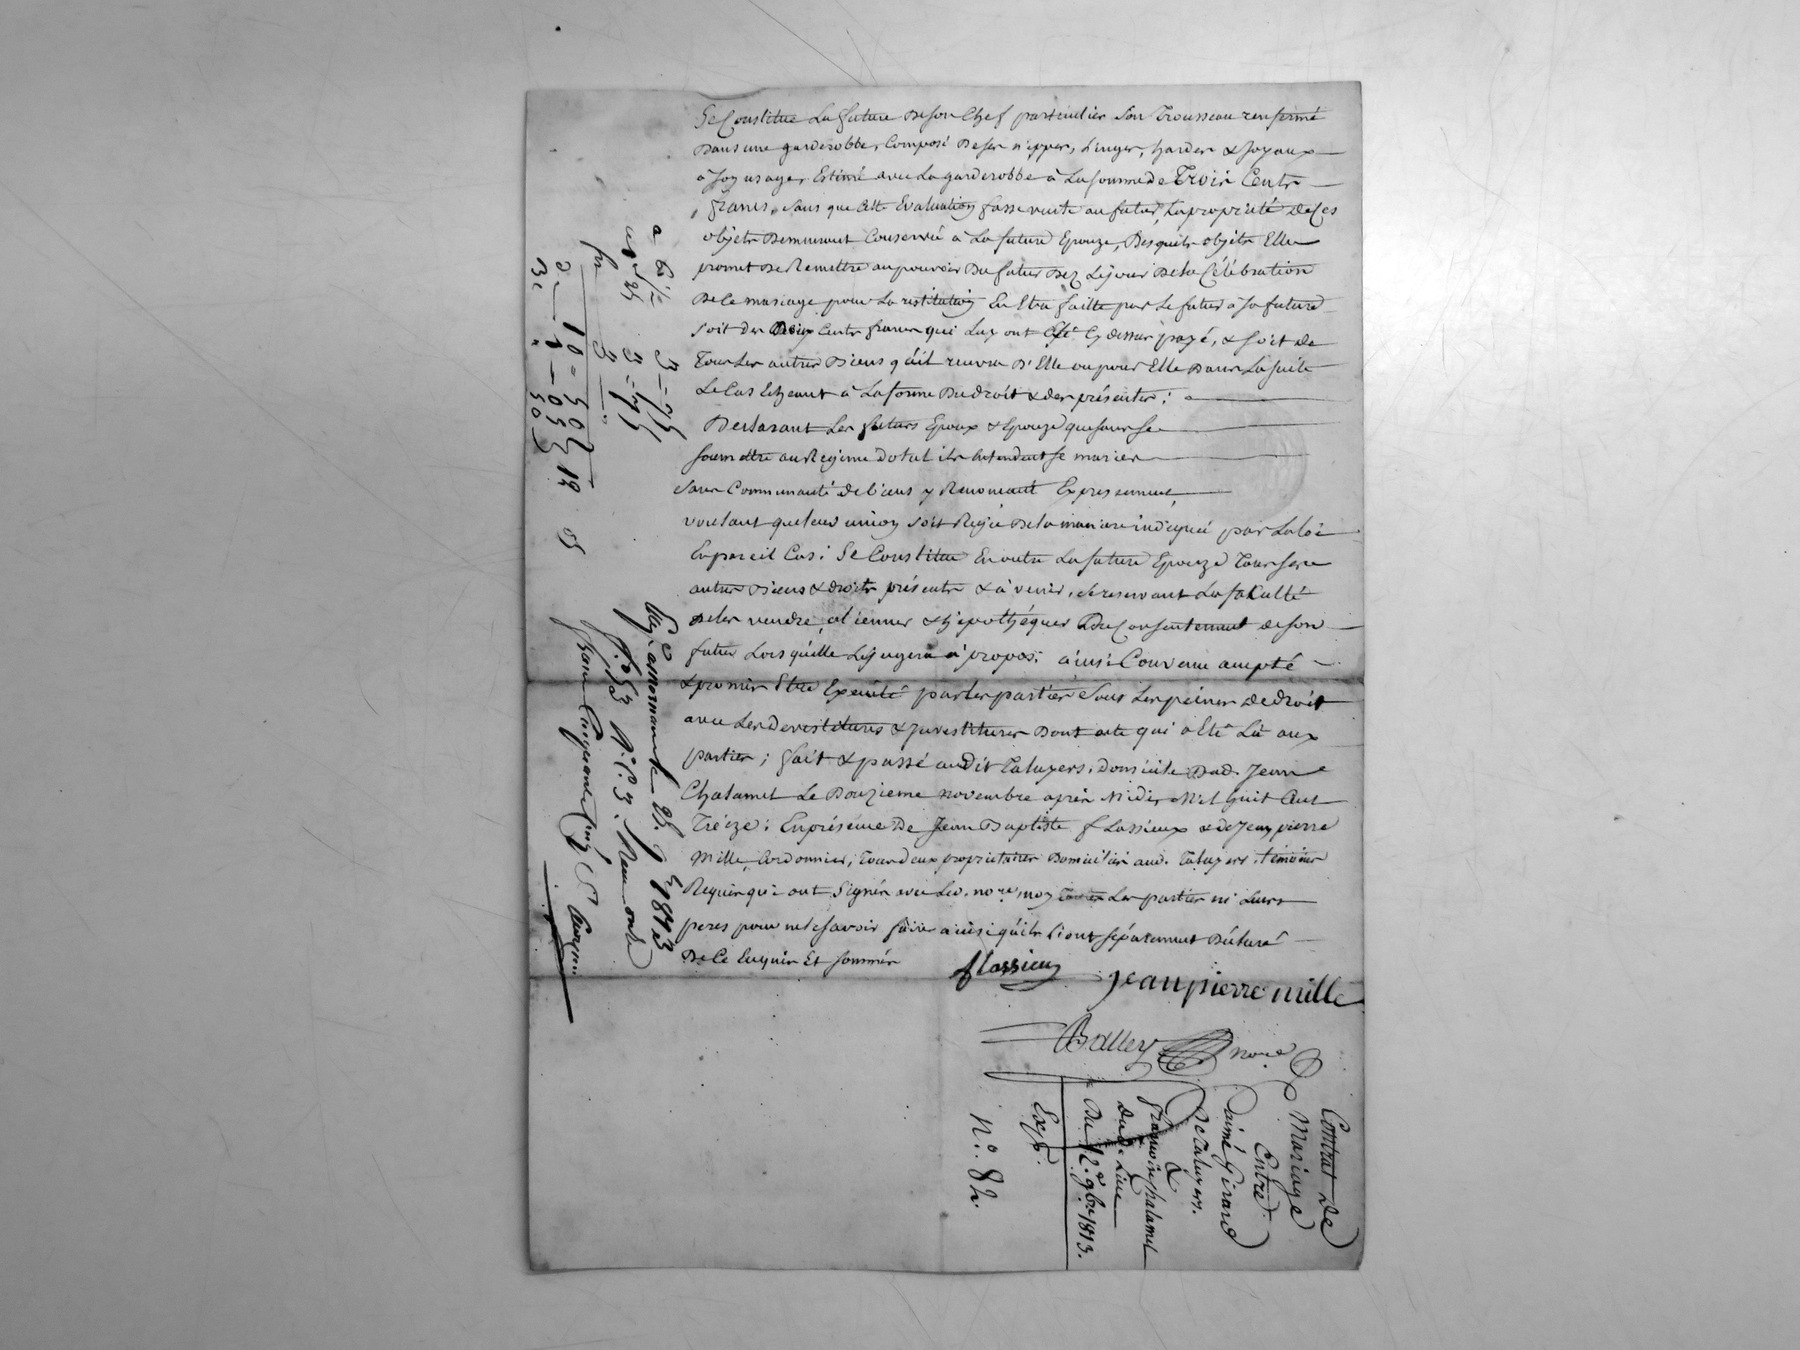 Se Constitue La future de son Chef particulier son Trousseau renfermé
dans une garderobbe, Composé de ses nippes, Linges, hardes & Joyaux
à son usage, Estimé avec La garderobbe à La somme de Trois Cents
francs, sans que cette Evaluation fasse vente au futur, La propriété de Ces
objets demeurant Conservée à La future Epouze, Desquels objets Elle
promet de Remettre au pouvoir du futur dez Le jour de la Célébration
de Ce mariage pour La restitution En Etre faitte par Le futur à sa future
soit des deux Cents francs qui Luy ont Eté Cy dessus payé, & soit de
Tous Les autres Biens qu'il recevra d'Elle ou pour Elle dans La suite
Le Cas Echeant à La forme du droit & des présentes;
Declarant Les futurs Epoux & Epouze que sans se
soumettre au Regime dotal ils Entendent se marier
sans Communauté de biens y Renoncant Expressement,
voulant que leur union soit Regie de la maniere indiquée par La loi
En pareil Cas: Se Constitue En outre La future Epouze Tous ses
autres Biens & droits présents & à venir, se reservant La faculté
de les vendre, aliener & hipothéquer du Consentement de son
futur Lorsqu'elle Le jugera à propos: ainsi Convenu accepté
& promis Etre Exécuté par les parties sous Les peines de droit
avec Les devestitures & Investitures dont acte qui a Eté Lû aux
parties; fait & passé audit Taluyers, domicile dud. Jean
Chalamel Le Douzieme novembre après Midi, Mil huit Cent
Treize: En présence de Jean Baptiste flassieux & de Jean pierre
Mille, Cordonnier, tous deux proprietaires domiciliés aud. Taluyers, témoins
Requis qui ont Signés avec Led. nore, non Les parties ni Leurs
peres pour ne Le savoir faire ainsi qu'ils L'ont séparement déclaré
de Ce Enquis Et sommés
flassieux jean pierre mille
Balley nore
Contrat de
Mariage
Entre
aimé Girard
de Taluyers.
&
françoise Chalamel
dud. Lieu
Du 12e. 9bre 1813.
Exp.
N°. 82.
Eng. a mornant le 25. 9 1813
fo. 53 Ro. C. 9. Recu onze